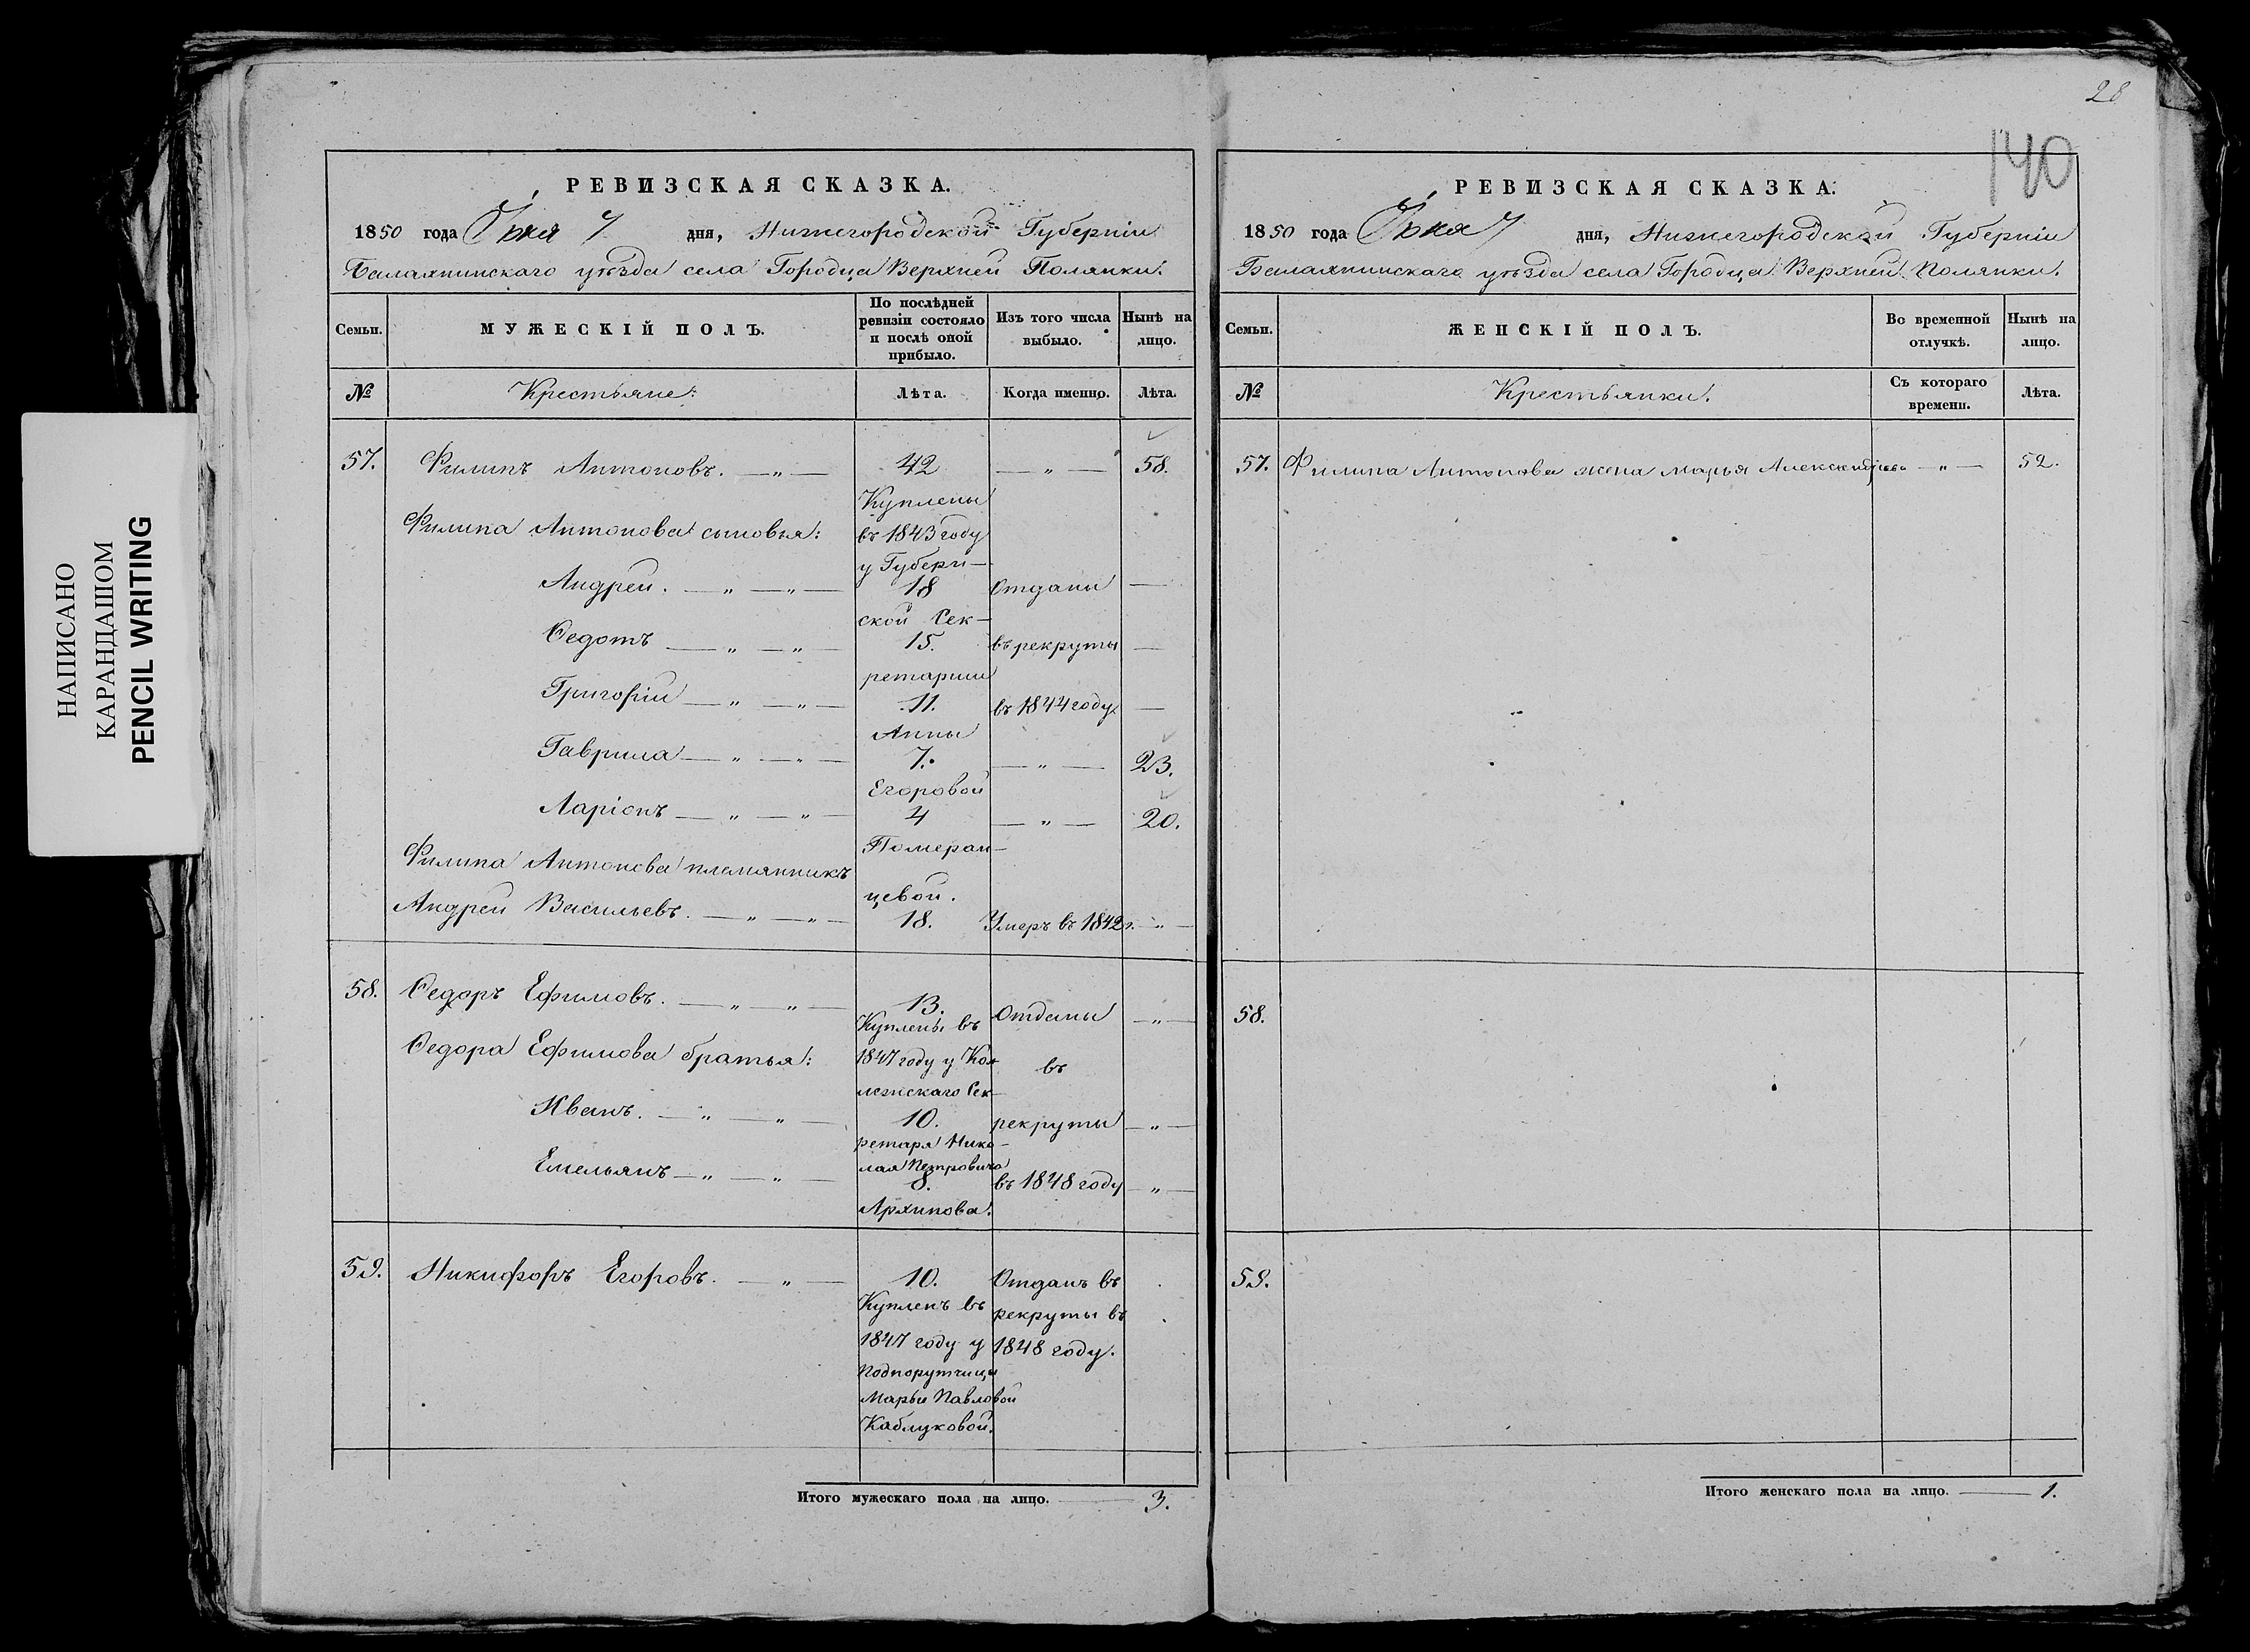 НАПИСАНО
КАРАНДАШОМ
PENCIL WRITING
РЕВИЗСКАЯ СКАЗКА.
1850 года Іюня 7 дня, Нижегородской Губерніи
Балахнинскаго уѣзда села Городца Верхней Полянки.
Семьи.
МУЖЕСКІЙ ПОЛЪ.
По послѣдней ревизіи состояло и послѣ оной прибыло.
Изъ того числа выбыло.
Нынѣ на лицо.
№ Крестьяне: Лѣта. Когда именно. Лѣта.
57. Филипъ Антоновъ. — „ — 42 — „ — 58.
Куплены
Филипа Антонова сыновья: въ 1843 году
у Губерн—
Андрей. — „ — „ — 18 Отданы —
ской Сек—
Ѳедотъ — „ — „ — 15. въ рекруты —
ретарши
Григорій — „ — „ — 11. въ 1844 году. —
Анны
Гаврила — „ — „ — 7. — „ — 23.
Егоровой
Ларіонъ — „ — „ — 4 — „ — 20.
Померан—
Филипа Антонова племянникъ
цевой.
Андрей Васильевъ. — „ — „ — 18. Умеръ въ 1842 г. — „ —
58. Ѳедоръ Ефимовъ. — „ — „ — 13. Отданы — „ —
Куплены въ
Ѳедора Ефимова братья: 1847 году у Кол въ
лежскаго Сек—
Иванъ. — „ — „ — 10. рекруты — „ —
ретаря Нико—
лая Петровича
Емельянъ — „ — „ — 8. въ 1848 году — „ —
Архипова.
59. Никифоръ Егоровъ. — „ — 10. Отданъ въ
Купленъ въ рекруты въ
1847 году у 1848 году.
Подпорутчицы
Марьи Павловой
Каблуковой.
Итого мужескаго пола на лицо. — 3.
28
140
РЕВИЗСКАЯ СКАЗКА.
1850 года Іюня 7 дня, Нижегородской Губерніи
Балахнинскаго уѣзда села Городца Верхней Полянки.
Семьи.
ЖЕНСКІЙ ПОЛЪ.
Во временной отлучкѣ.
Нынѣ на лицо.
№ Крестьянки. Съ котораго времени. Лѣта.
57. Филипа Антонова жена Марья Александрова — „ — 52.
58.
59.
Итого женскаго пола на лицо. — 1.